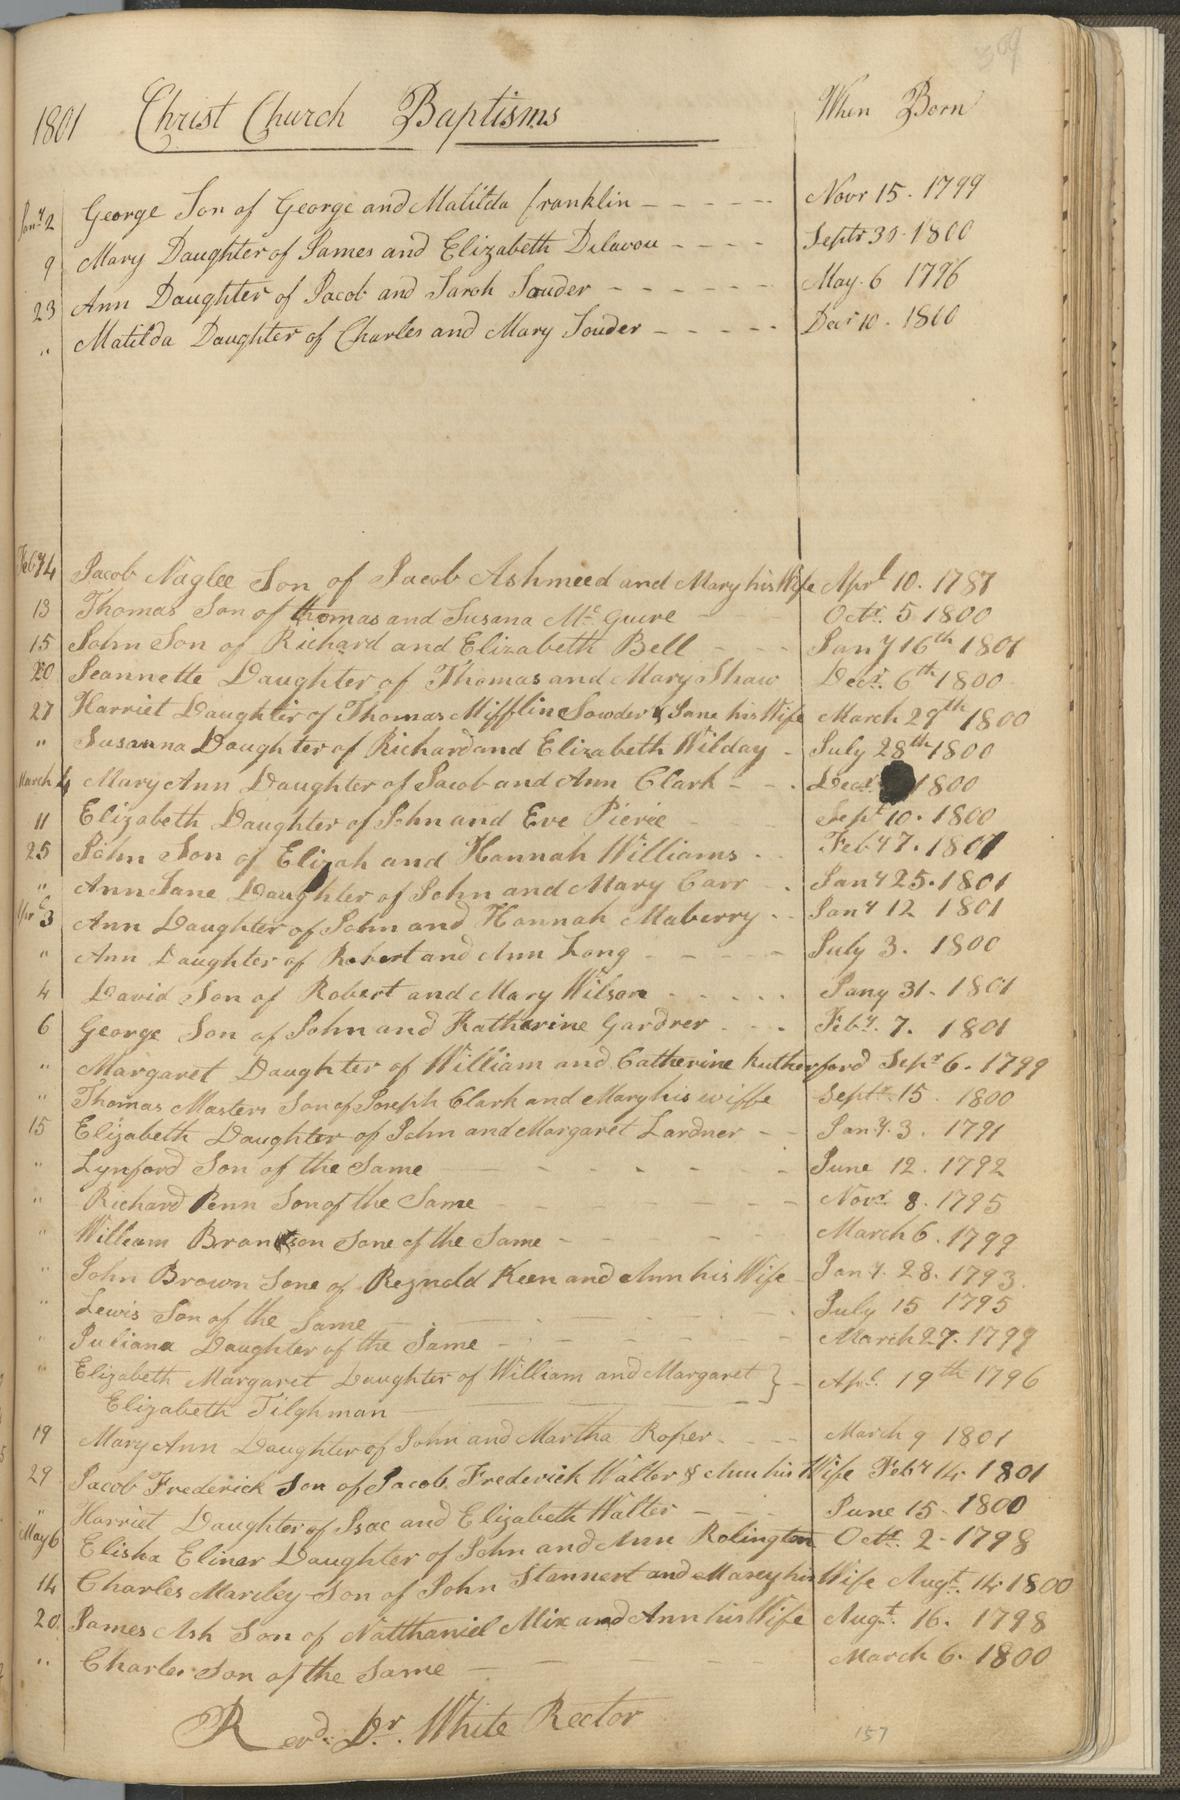 309
1801 Christ Church Baptisms When Born
Jany 2 George Son of George and Matilda Franklin Novr 15. 1799
9 Mary Daughter of James and Elizabeth Delavou Septr 30. 1800
23 Ann Daughter of Jacob and Sarah Souder May. 6 1796
" Matilda Daughter of Charles and Mary Souder Decr 10. 1800
Feby 4 Jacob Naglee Son of Jacob Ashmeed and Mary his Wife Aprl 10. 1787
13 Thomas Son of thomas and Susana Mc Guire Octr. 5 1800
15 John Son of Richard and Elizabeth Bell Jany 16th 1801
20 Jeannette Daughter of Thomas and Mary Shaw Decr. 6th 1800
27 Harriet Daughter of Thomas Mifflin Sowder & Jane his Wife March 29th 1800
" Susanna Daughter of Richard and Elizabeth Wilday July 28th 1800
March 4 Mary Ann Daughter of Jacob and Ann Clark Decr. 1800
11 Elizabeth Daughter of John and Eve Pierie Sept 10. 1800
25 John Son of Elizah and Hannah Williams Feby 7. 1801
" Ann Jane Daughter of John and Mary Carr Jany 25. 1801
Aprl 3 Ann Daughter of John and Hannah Maberry Jany 12 1801
" Ann Daughter of Robert and Ann Long July 3. 1800
4 David Son of Robert and Mary Wilson Jany 31. 1801
6 George Son of John and Katharine Gardner Feby. 7. 1801
" Margaret Daughter of William and Catherine Rutherford Sepr 6. 1799
" Thomas Masters Son of Joseph Clark and Mary his wiffe Septr. 15. 1800
15 Elizabeth Daughter of John and Margaret Lardner Jany. 3. 1791
" Lynford Son of the Same June 12. 1792
" Richard Penn Son of the Same Novr. 8. 1795
" William Branson Sone of the Same March 6. 1799
" John Brown Sone of Reynold Keen and Ann his Wife Jany. 28. 1793
" Lewis Son of the Same July 15 1795
" Juliana Daughter of the Same March 27. 1799
" Elizabeth Margaret Daughter of William and Margaret } Apl. 19th 1796
Elizabeth Tilghman
19 Mary Ann Daughter of John and Martha Roper March 9 1801
29 Jacob Frederick Son of Jacob Frederick Walter & Ann his Wife Feby 14. 1801
" Harriet Daughter of Isac and Elizabeth Walter June 15. 1800
May 6 Elisha Eliner Daughter of John and Ann Rolington Octr. 2. 1798
14 Charles Marcley Son of John Stannert and Marey his Wife Augt. 14. 1800
20. James Ash Son of Natthaniel Mix and Ann his Wife Augt. 16. 1798
" Charles Son of the Same March 6. 1800
Revd. Dr. White Rector
157